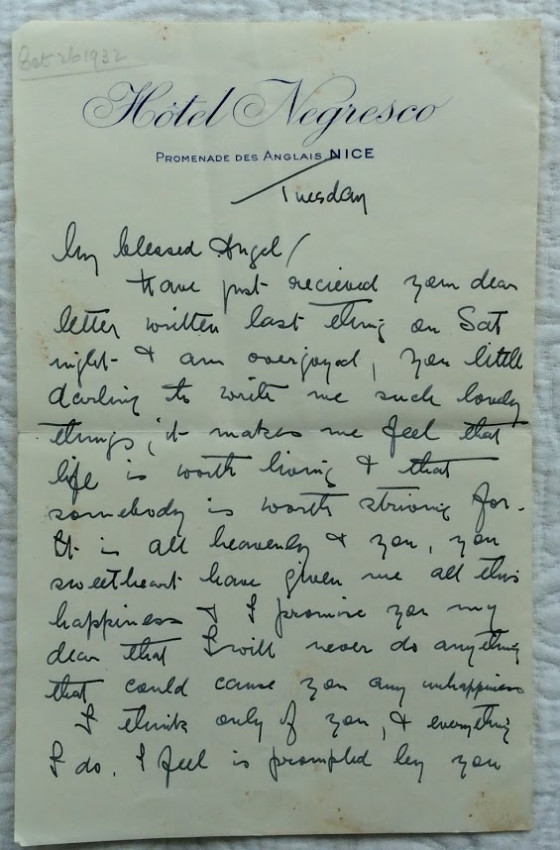 Oct 26 1932
Hôtel Negresco
PROMENADE DES ANGLAIS NICE
Tuesday
My blessed Angel /
Have just recieved your dear
letter written last thing on Sat
night & am overjoyed, you little
darling to write me such lovely
things; it makes me feel that
life is worth living & that
somebody is worth striving for.
It is all heavenly & you, you
sweetheart have given me all this
happiness & I promise you my
dear that I will never do anything
that could cause you any unhappiness
I think only of you, & everything
I do, I feel is prompted by you